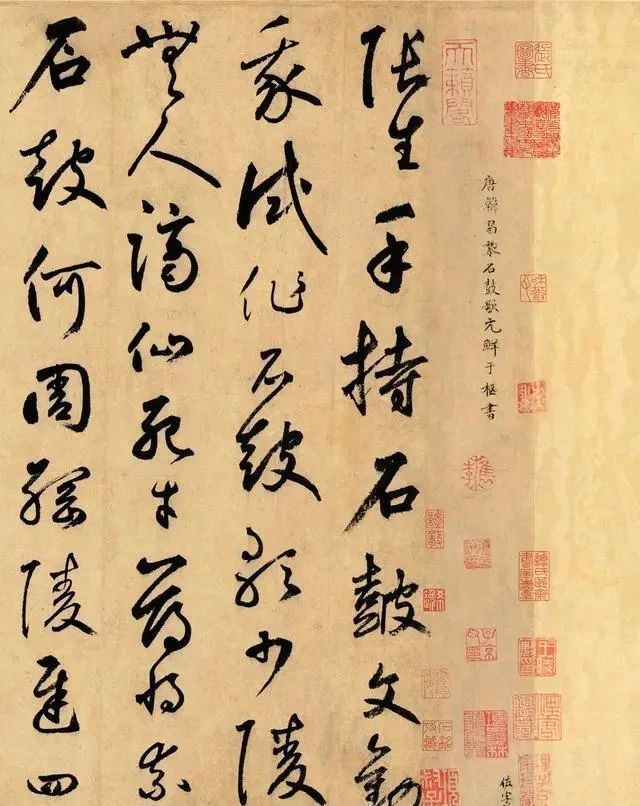 天籟閣
唐韓昌黎石鼓歌元鮮于樞書
張生手持石鼓文勸
我試作石鼓歌少陵
無人謫仙死才薄將奈
石鼓何周綱陵遲四